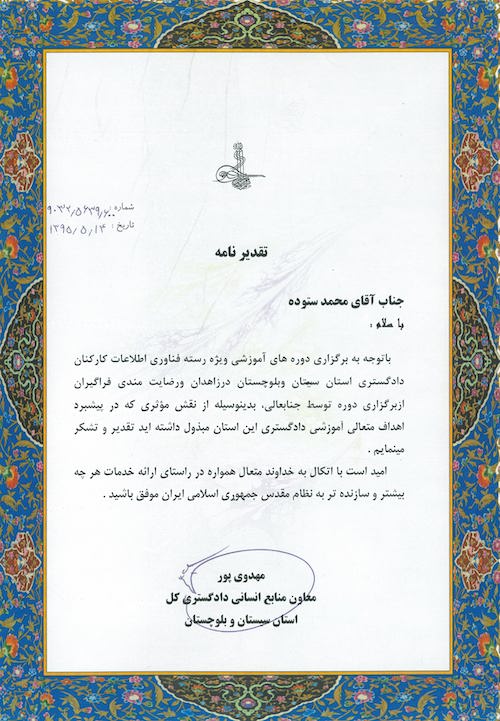 شماره: ۹۰۳۲/۵۶۳۹/۶۰۰
تاریخ: ۱۳۹۵/۵/۱۴
تقدیر نامه
جناب آقای محمد ستوده
با سلام ؛
باتوجه به برگزاری دوره های آموزشی ویژه رسته فناوری اطلاعات کارکنان
دادگستری استان سیتان وبلوچستان درزاهدان ورضایت مندی فراگیران
ازبرگزاری دوره توسط جنابعالی، بدینوسیله از نقش مؤثری که در پیشبرد
اهداف متعالی آموزشی دادگستری این استان مبذول داشته اید تقدیر و تشکر
مینمایم .
امید است با اتکال به خداوند متعال همواره در راستای ارائه خدمات هر چه
بیشتر و سازنده تر به نظام مقدس جمهوری اسلامی ایران موفق باشید .
مهدوی پور
معاون منابع انسانی دادگستری کل
استان سیستان و بلوچستان